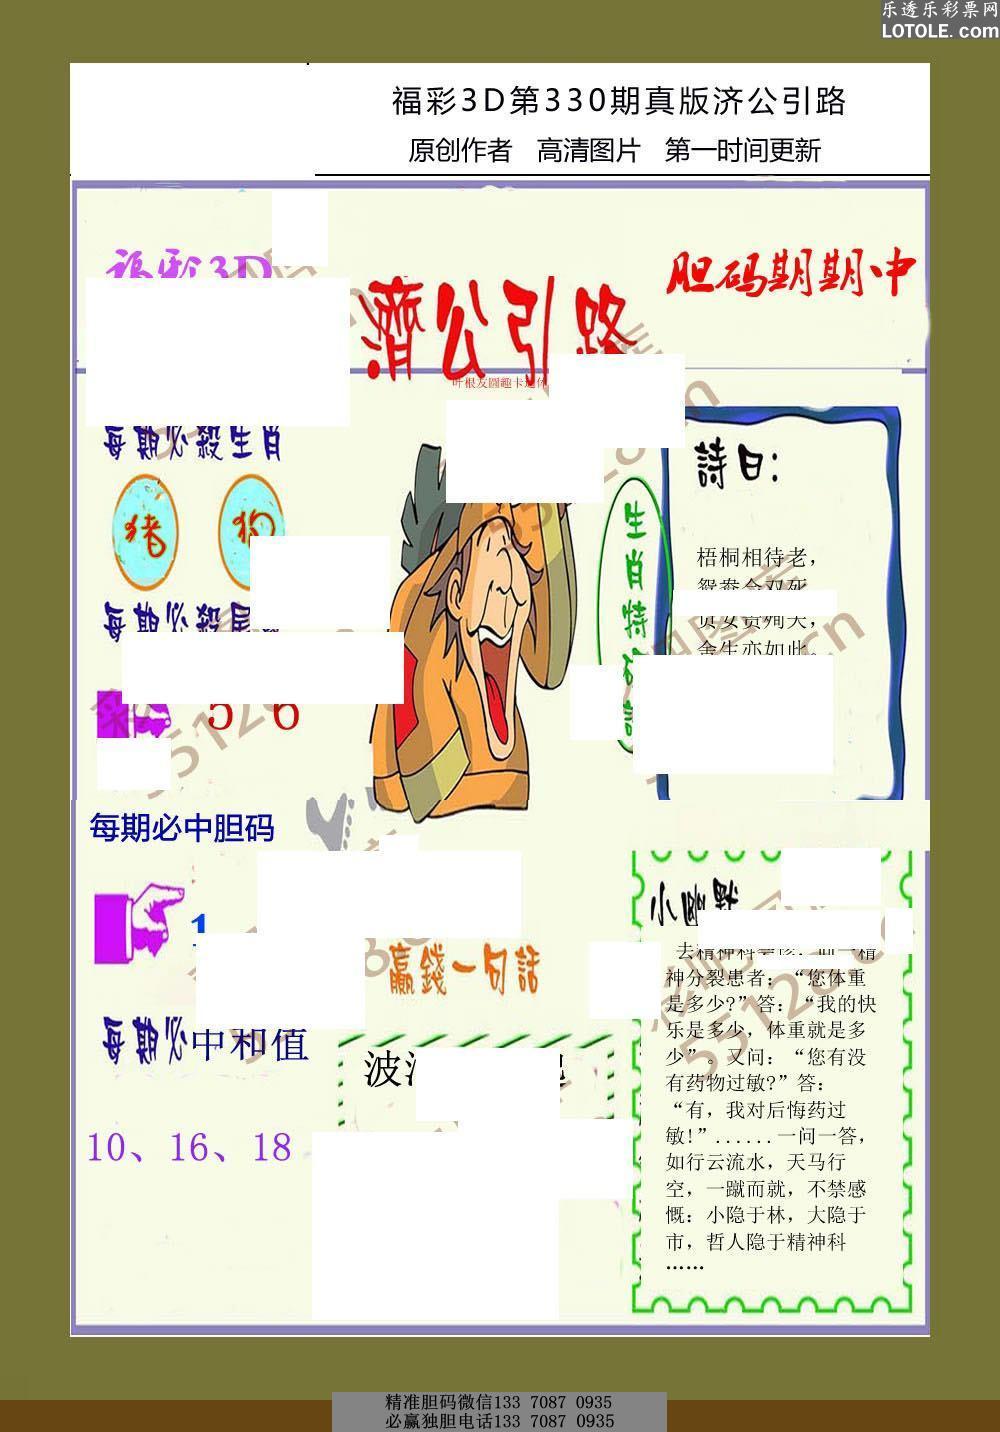 乐透乐彩票网
LOTOLE.com
福彩3D第330期真版济公引路
原创作者 高清图片 第一时间更新
福彩3D
胆码期期中
濟公引路
叶根友圆趣卡通体
每期必殺生肖
猪 狗
每期必殺尾
5 6
生肖特码詩
詩曰：
梧桐相待老，
鸳鸯会双死。
贞女贵殉夫，
舍生亦如此。
每期必中胆码
1
赢錢一句話
每期必中和值
波
10、16、18
小幽默
去精神科会诊，问一精
神分裂患者：“您体重
是多少?”答：“我的快
乐是多少，体重就是多
少”。又问：“您有没
有药物过敏?”答：
“有，我对后悔药过
敏!”......一问一答，
如行云流水，天马行
空，一蹴而就，不禁感
慨：小隐于林，大隐于
市，哲人隐于精神科
……
精准胆码微信133 7087 0935
必赢独胆电话133 7087 0935